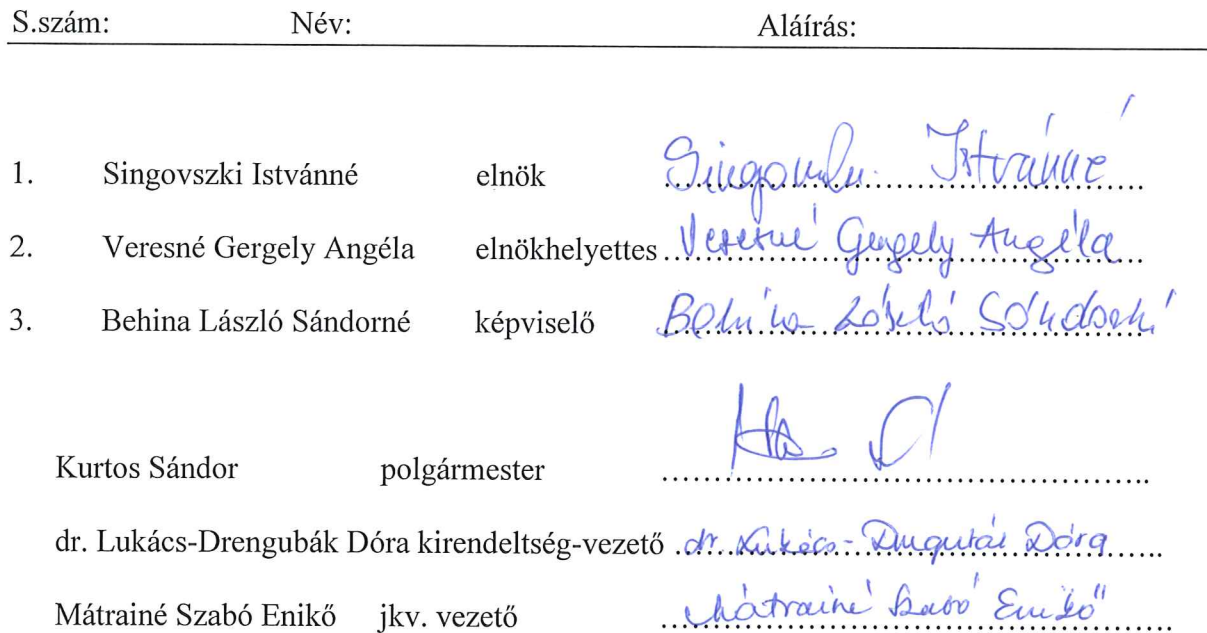 S.szám: Név: Aláírás:
1. Singovszki Istvánné elnök Singovszki Istvánné
2. Veresné Gergely Angéla elnökhelyettes Veresné Gergely Angéla
3. Behina László Sándorné képviselő Behina László Sándorné
Kurtos Sándor polgármester
dr. Lukács-Drengubák Dóra kirendeltség-vezető dr. Lukács-Drengubák Dóra
Mátrainé Szabó Enikő jkv. vezető Mátrainé Szabó Enikő